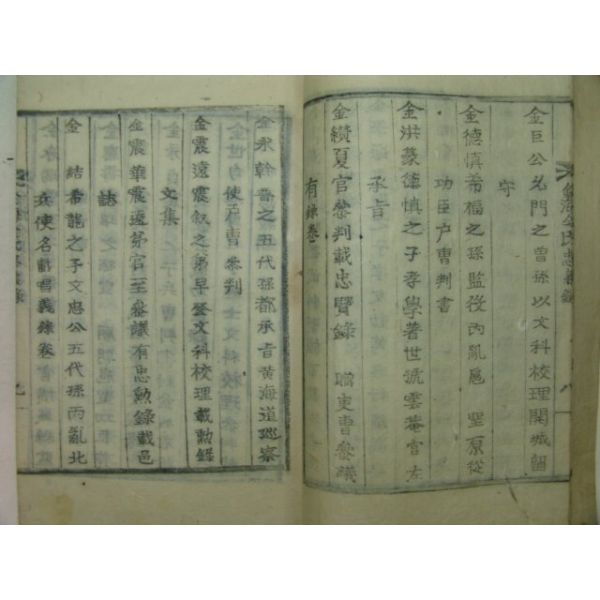 金巨公允門之曾孫以文科校理開城留
守
金德慎希福之孫監役丙亂扈 聖原從
功臣戶曹判書
金洪篆德慎之子孝學著世號雲菴官左
承旨
金纘夏官叅判載忠賢錄 贈吏曹叅議
有錄卷
金氏忠義錄 八
金永幹晉之五代孫都承旨黃海道廵察
使戶曹叅判
金震遠震叙之弟早登文科校理載勳錄
文集
金震華震遠弟官至叅議有忠勳錄載邑
誌
金 結希龍之子文忠公五代孫丙亂北
兵使名載昌義錄卷
九